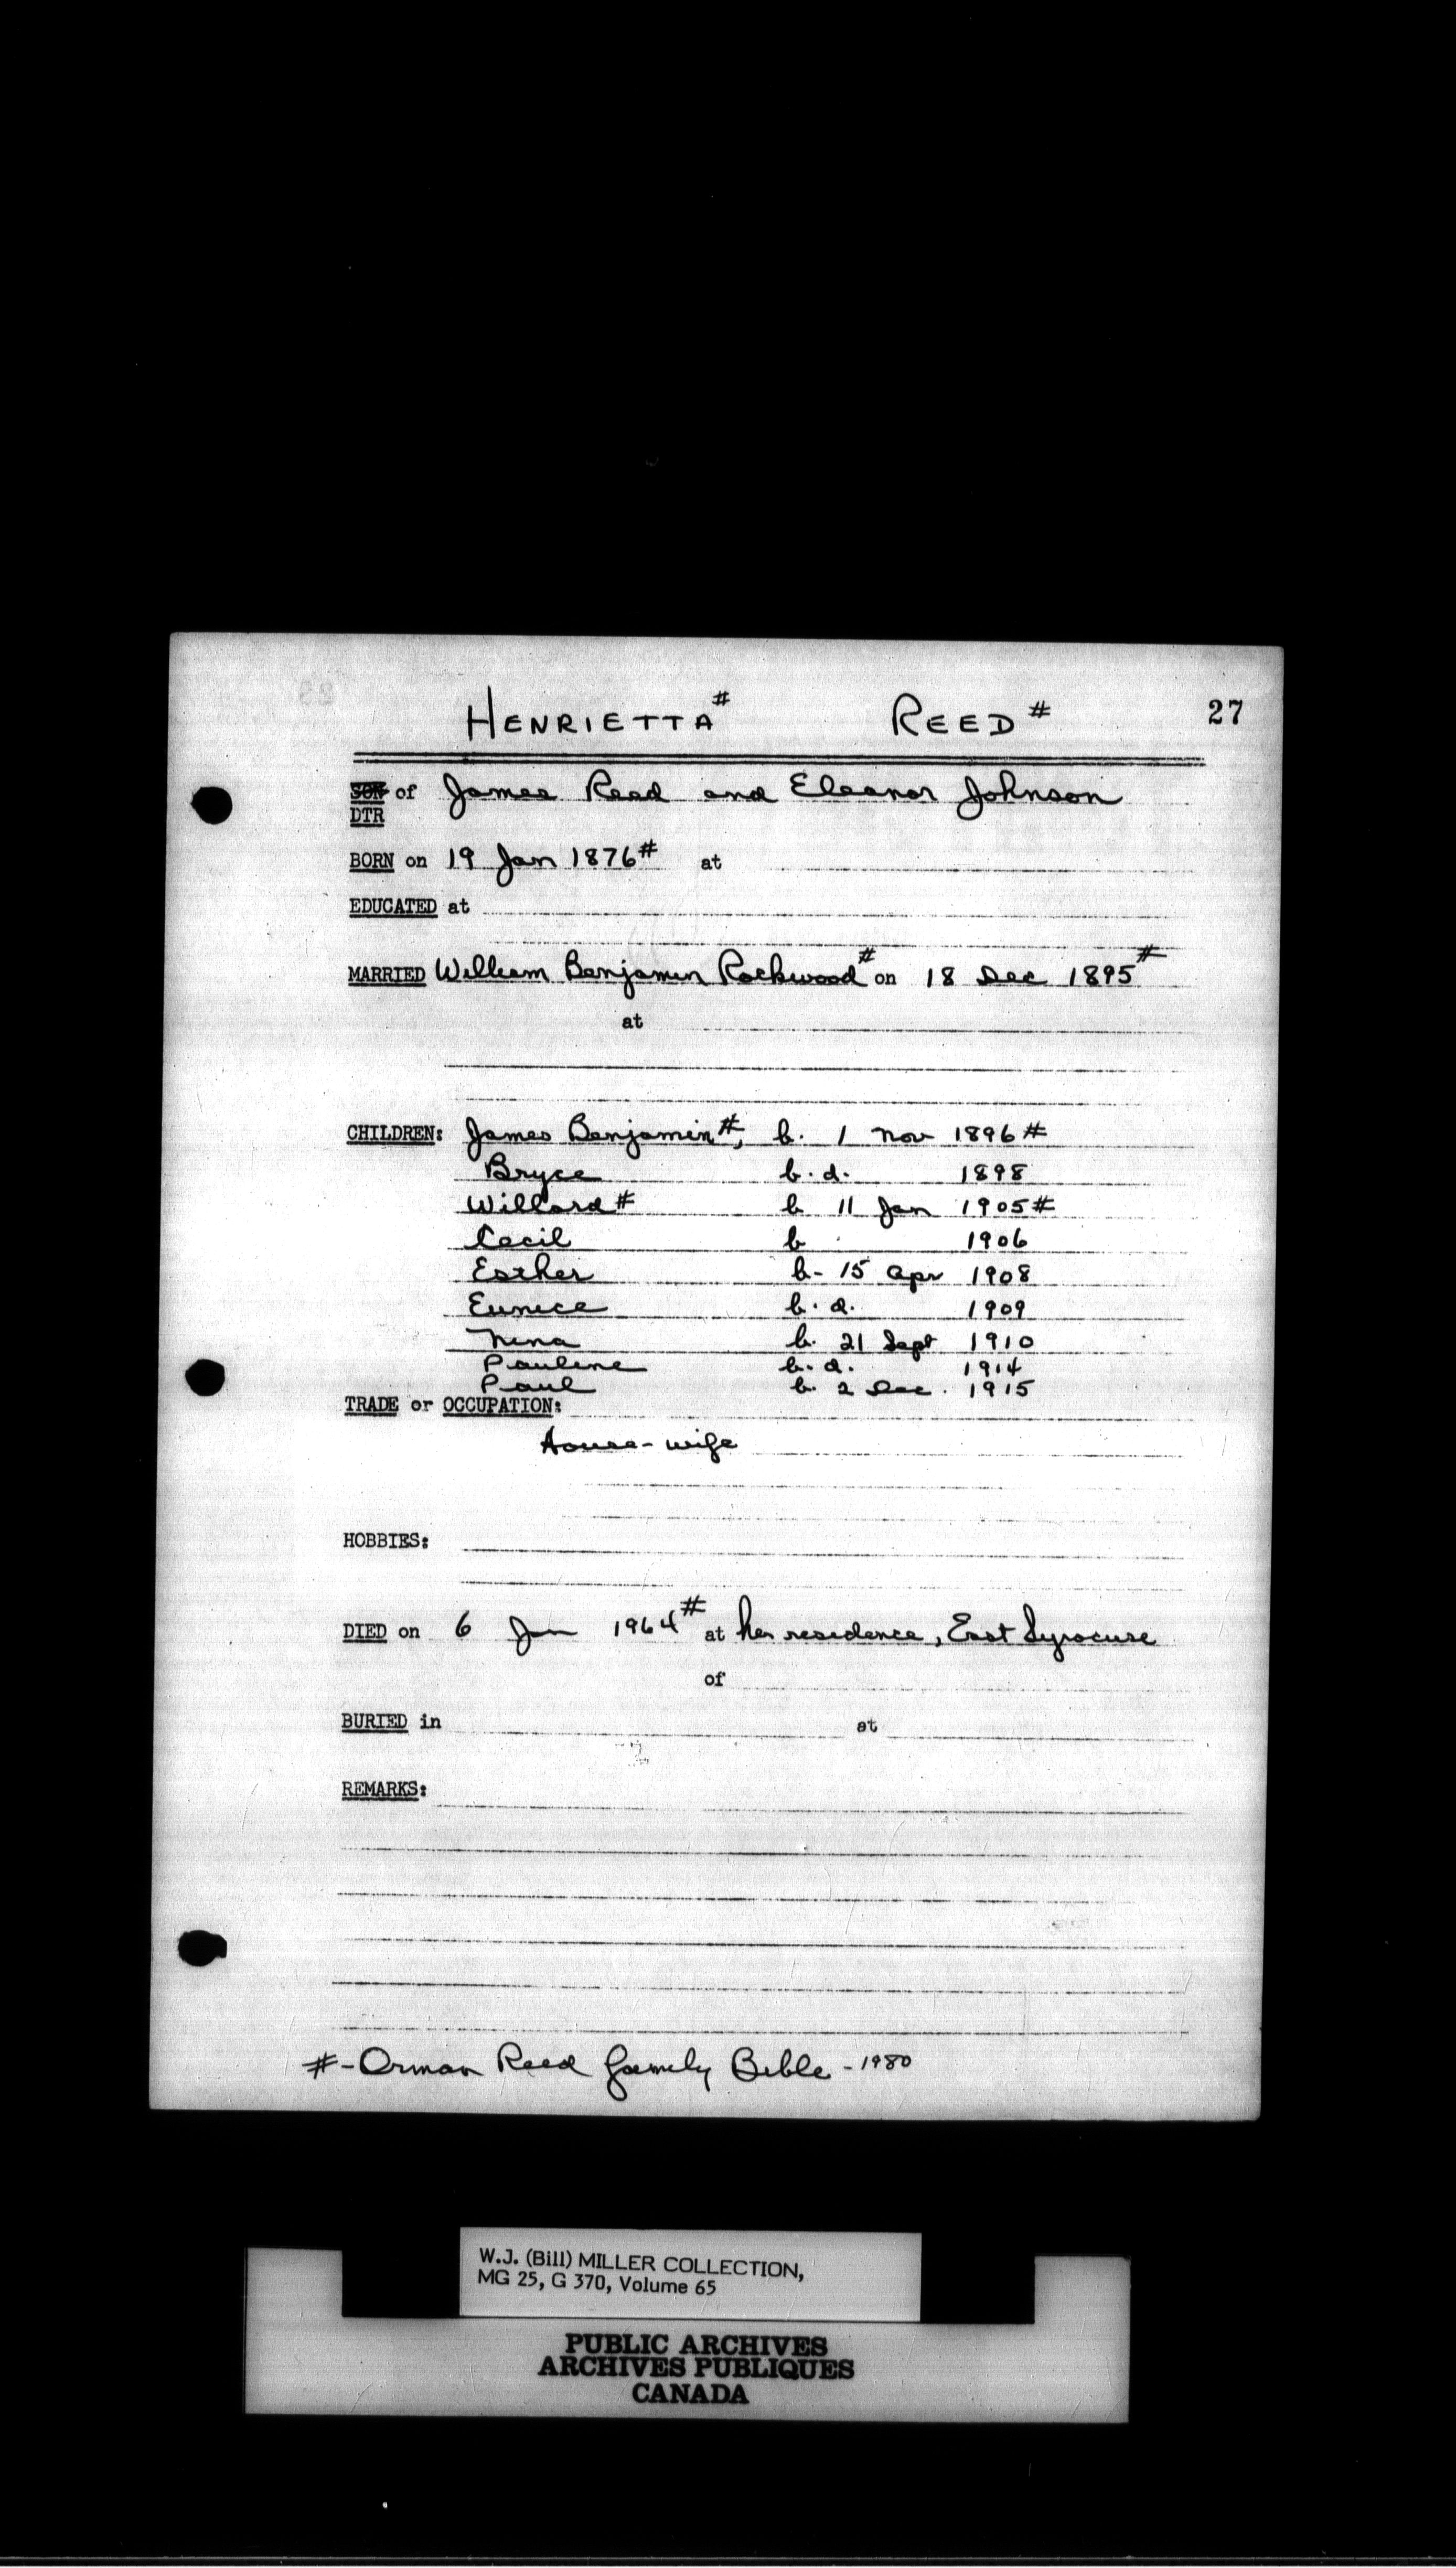 HENRIETTA# REED# 27
SON of James Reed and Eleanor Johnson
DTR
BORN on 19 Jan 1876# at
EDUCATED at
MARRIED William Benjamin Rockwood# on 18 Dec 1895#
at
CHILDREN: James Benjamin#, b. 1 Nov 1896#
Bryce b.d. 1898
Willard# b 11 Jan 1905#
Cecil b 1906
Esther b- 15 Apr 1908
Eunice b.d. 1909
Nina b. 21 Sept 1910
Pauline b.d. 1914
Paul b. 2 Dec. 1915
TRADE or OCCUPATION:
House-wife
HOBBIES:
DIED on 6 Jan 1964# at her residence, East Syracuse
of
BURIED in at
REMARKS:
#-Orman Reed family Bible - 1980
W.J. (Bill) MILLER COLLECTION,
MG 25, G 370, Volume 65
PUBLIC ARCHIVES
ARCHIVES PUBLIQUES
CANADA